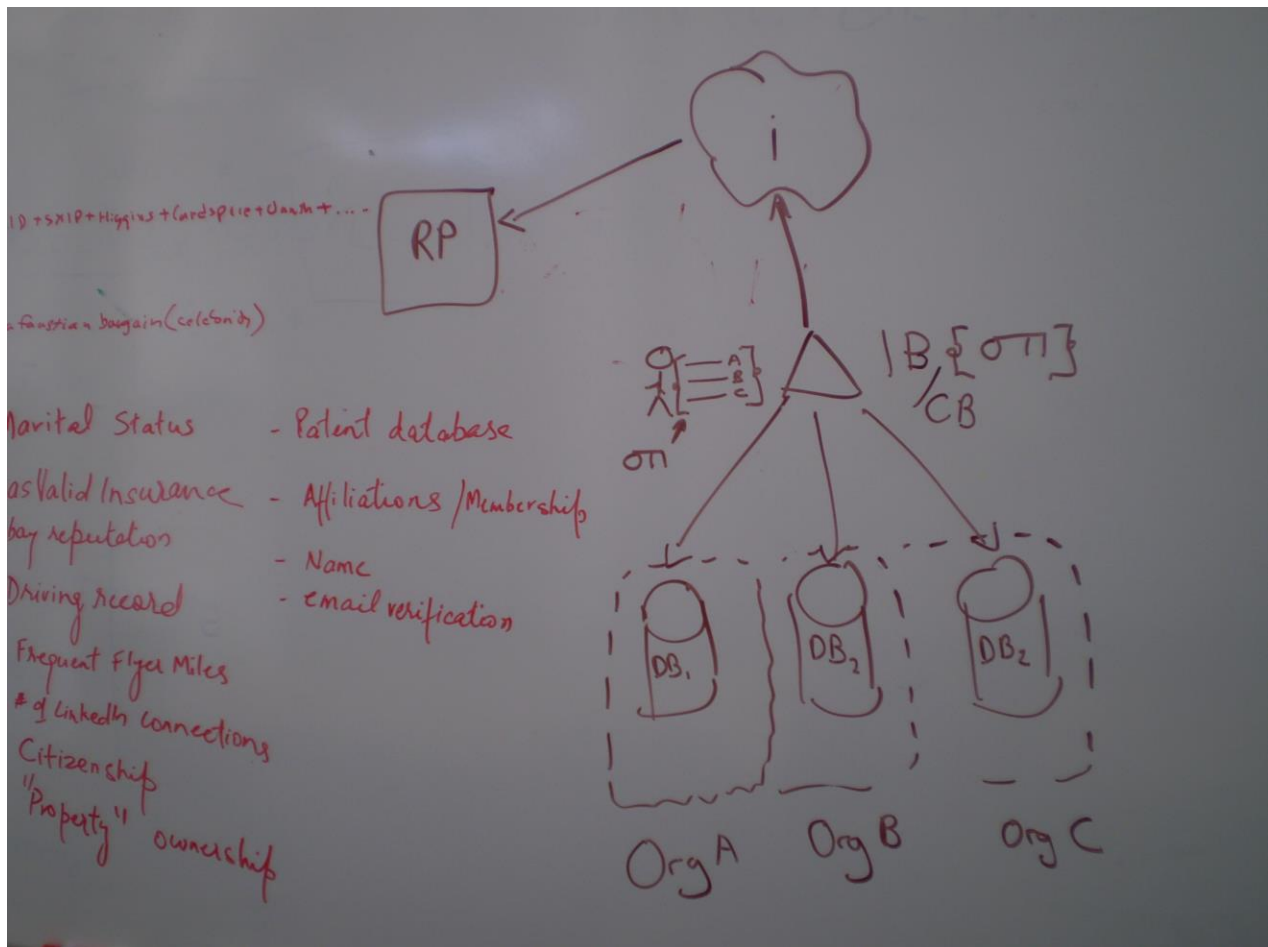 i
ID + SXIP + Higgins + Cardspace + Oauth + ....
RP
faustian bargain (celebrity)
A
B
C
σΠ
IB {σΠ}
/CB
Marital Status
as Valid Insurance
bay reputation
Driving record
Frequent Flyer Miles
# of LinkedIn connections
Citizenship
"Property" ownership
- Patent database
- Affiliations / Membership
- Name
- email verification
DB1
DB2
DB2
Org A
Org B
Org C